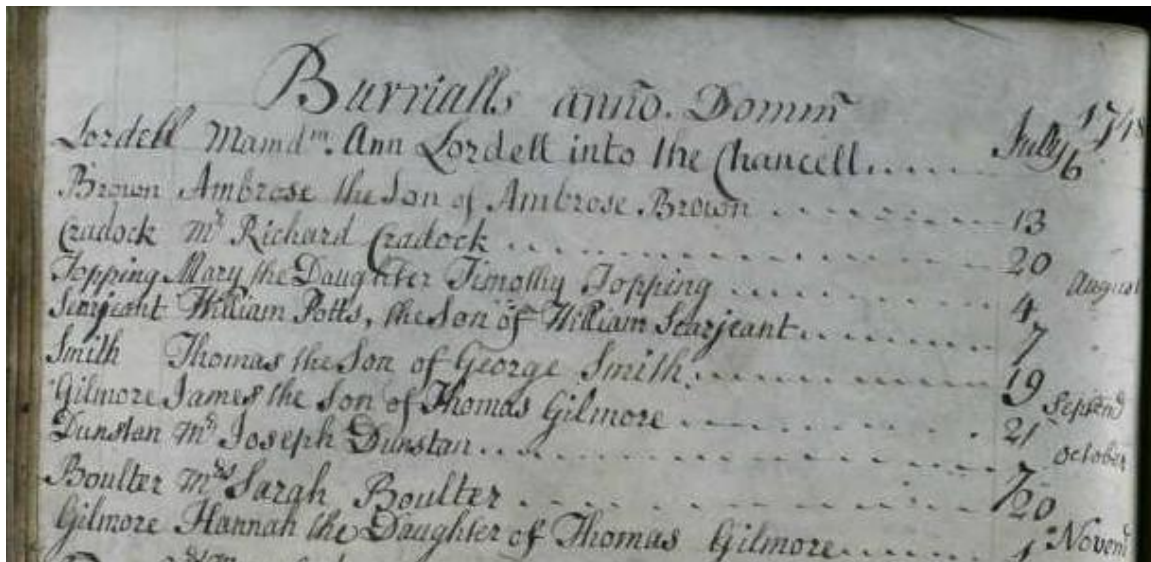 Burrialls anno. Domm
Lordell Mamdm. Ann Lordell into the Chancell..... July 16
Brown Ambrose the Son of Ambrose Brown ........ 13
Cradock Mr Richard Cradock ........ 20
Topping Mary the Daughter Timothy Topping ........ 4 August
Searjeant William Potts, the Son of William Searjeant........ 7
Smith Thomas the Son of George Smith........ 19
Gilmore James the Son of Thomas Gilmore ........ 21 Septemd
Dunstan Mr Joseph Dunstan........ 7 October
Boulter Mrs Sarah Boulter ........ 20
Gilmore Hannah the Daughter of Thomas Gilmore..... Novemd